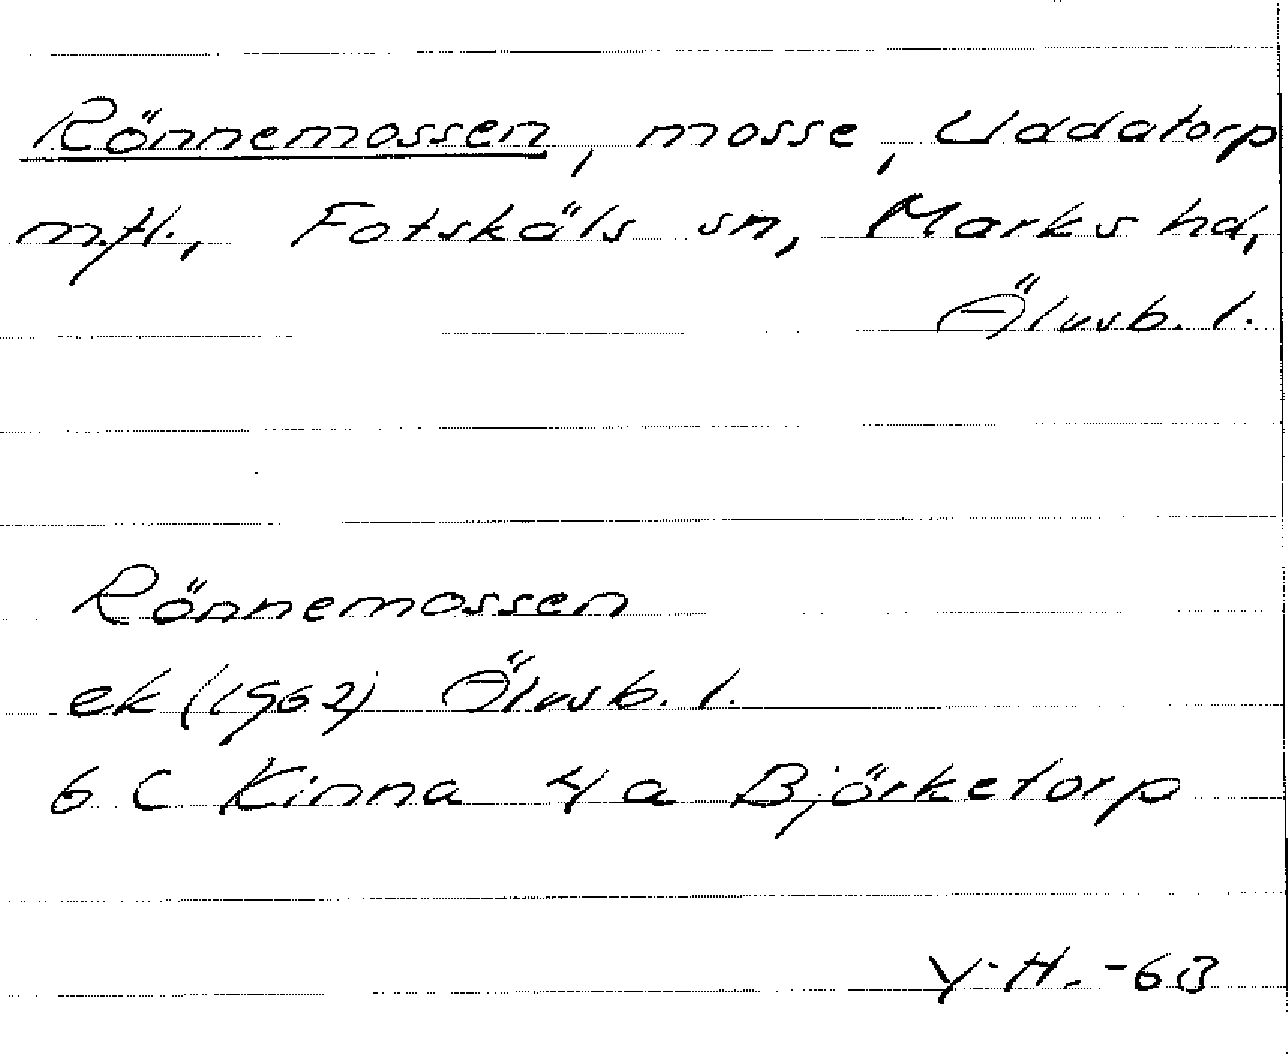 Rönnemossen, mosse, Uddatorp
m.fl., Fotskäls sn, Marks hd,
Älvsb. l.
Rönnemossen
ek (1962) Älvsb. l.
6 C Kinna 4 a Björketorp
Y. H. -63